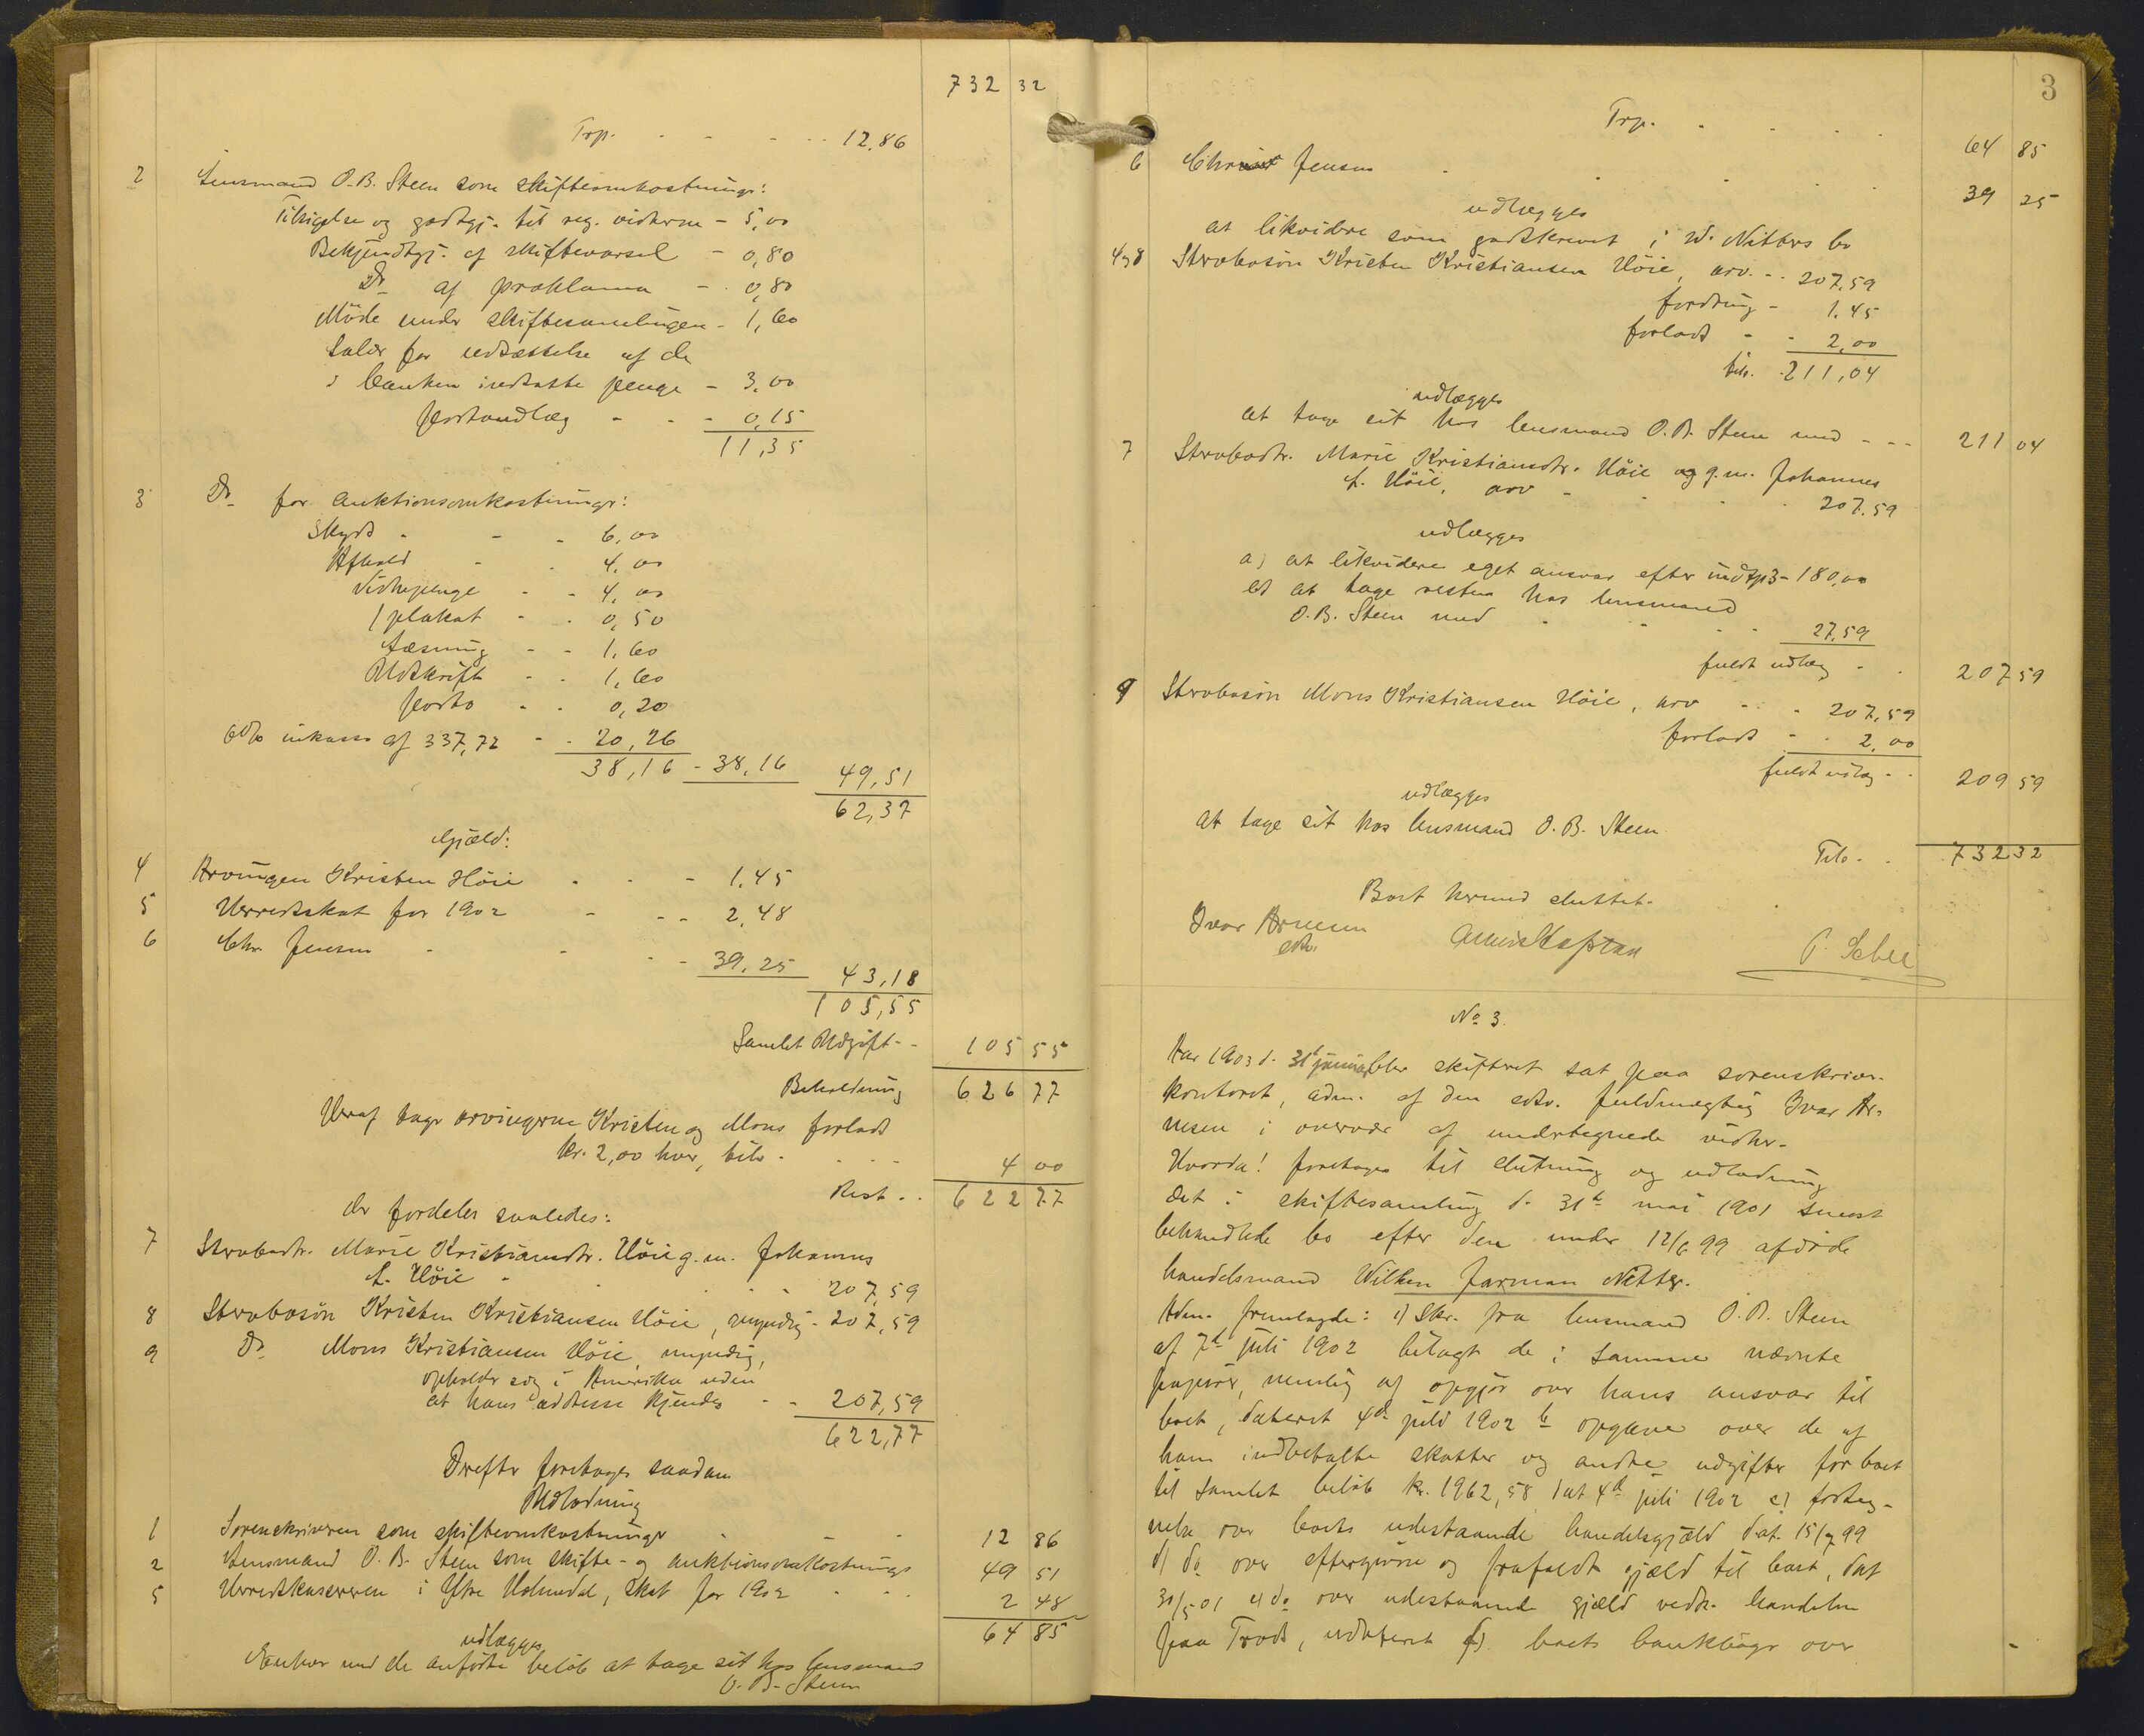 732 32
Trp. - - - - - 12.86
2 Lensmand O. B. Steen som skifteomkostninger:
Tilsigelse og godtgj. til reg. vidnerne - 5,00
Bekjendtgj. af skiftevarsel - 0,80
Do af proklama - 0,80
Möde under skiftesamlingen - 1,60
Salær for udsættelse af de
i banken indsatte penge - 3,00
portoudlæg - - - 0,15
11,35
3 Do for auktionsomkostninger:
Skyds - - - 6,00
Afhold - - 4,00
Vidnepenge - - 4,00
1 plakat - - 0,50
Læsning - - 1,60
Udskrift - - 1,60
porto - - 0,20
6% inkasso af 337,72 - - 20,26
38,16 - 38,16 49,51
62,37
Gjæld:
4 Arvingen Kristen Höie - - - 1.45
5 Herredsskat for 1902 - - - 2,48
6 Chr. Jensen - - - - 39,25 43,18
105,55
Samlet Udgift - - 105 55
Beholdning 626 77
Heraf tager arvingerne Kristen og Mons forlods
kr. 2,00 hver, tils. - - - - 4 00
Rest - - 622 77
der fordeles saaledes:
7 Sterbodtr. Marie Kristiansdtr. Höie g. m. Johannes
L. Höie - - - - 207,59
8 Sterbosön Kristen Kristiansen Höie, myndig - 207,59
9 Do Mons Kristiansen Höie, myndig,
opholder sig i Amerika uden
at hans addresse kjendes - - 207,59
622,77
Derefter foretages saadan
Udlodning
1 Sorenskriveren som skifteomkostninger - - - 12 86
2 Lensmand O. B. Steen som skifte- og auktionsomkostninger 49 51
5 Herredskasereren i Ytre Holmedal, skat for 1902 - - 2 48
64 85
udlægges
Enhver med de anförte beløb at tage sit hos lensmand
O. B. Steen
3
Trp. - - - - 64 85
6 Chr Jensen - - - - 39 25
udlægges
at likvidere som godskrevet i W. Nitters bo
4 og 8 Sterbosön Kristen Kristiansen Höie, arv - - 207,59
fordring - 1.45
forlods - - 2,00
tils. - 211,04
udlægges
at tage sit hos lensmand O. B. Steen med - - - 211 04
7 Sterbodtr. Marie Kristiansdtr. Höie og g. m. Johannes
L. Höie, arv - - - - 207.59
udlægges
a) at likvidere eget ansvar efter indtp 3 - 180,00
b) at tage resten hos lensmand
O. B. Steen med - - - - 27,59
fuldt udlæg - - 207 59
9 Sterbosön Mons Kristiansen Höie, arv - - - 207,59
forlods - - 2,00
fuldt udlæg - - 209 59
udlægges
at tage sit hos lensmand O. B. Steen
Tils - - 732 32
Boet hermed sluttet.
Ivar Arnesen
edsv.
P. Schee
No 3.
Aar 1903 d. 31te januar blev skifteret sat paa sorenskriver-
kontoret, adm. af den edsv. fuldmægtig Ivar Ar-
nesen i overvær af undertegnede vidner.
Hvorda! foretages til slutning og udlodning
det i skiftesamling d. 31te mai 1901 senest
behandlede bo efter den under 12/6 99 afdöde
handelsmand Wilken Jarman Nitter.
Adm. fremlagde: 1) Skr. fra lensmand O. B. Steen
af 7de juli 1902 bilagt de i samme nævnte
papirer, nemlig a) opgjör over hans ansvar til
boet, dateret 4de juli 1902 b) opgave over de af
ham indbetalte skatter og andre udgifter for boet
til samlet beløb kr. 1962,58 dat 4de juli 1902 c) forteg-
nelse over boets udestaaende handelsgjæld dat. 15/7 99
d) do over eftergiven og frafaldt gjæld til boet, dat
30/5 01 e) do over udestaaende gjæld vedk. handelen
paa Trods, udateret f) boets bankböger over